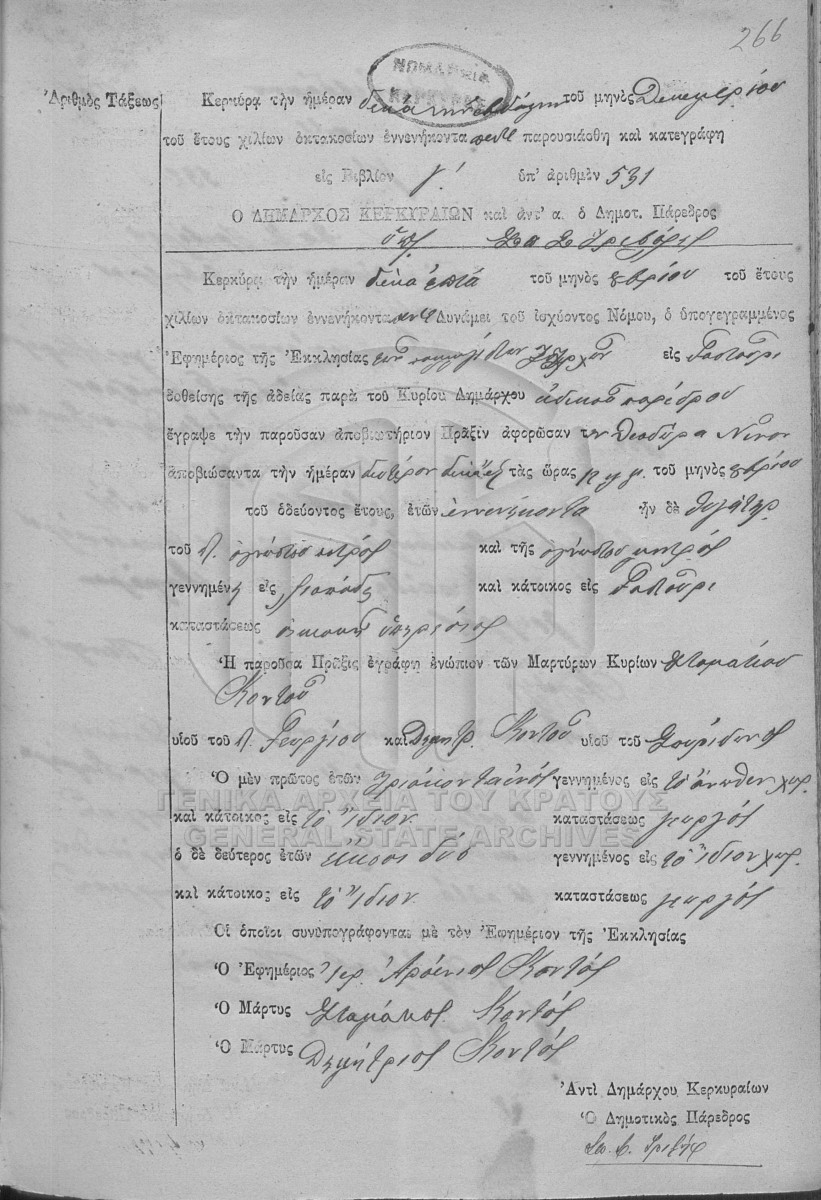 266
ΝΟΜΑΡΧΙΑ
ΚΕΡΚΥΡΑΣ
Ἀριθμὸς Τάξεως
Κερκύρᾳ τὴν ἡμέραν δεκά τοῦ μηνὸς Δεκεμβρίου
τοῦ ἔτους χιλίων ὀκτακοσίων ἐννενήκοντα πέντε παρουσιάσθη καὶ κατεγράφη
εἰς Βιβλίον γ! ὑπ' ἀριθμὸν 531
Ο ΔΗΜΑΡΧΟΣ ΚΕΡΚΥΡΑΙΩΝ καὶ ἀντ' α. ὁ Δημοτ. Πάρεδρος
Κερκύρᾳ τὴν ἡμέραν δεκα ἑπτά τοῦ μηνὸς 8βρίου τοῦ ἔτους
χιλίων ὀκτακοσίων ἐννενήκοντα Δυνάμει τοῦ ἰσχύοντος Νόμου, ὁ ὑπογεγραμμένος
Ἐφημέριος τῆς Ἐκκλησίας τῶν εἰς Γαστοῦρι
δοθείσης τῆς ἀδείας παρὰ τοῦ Κυρίου Δημάρχου εἰδικοῦ παρέδρου
ἔγραψε τὴν παροῦσαν ἀποβιωτήριον Πρᾶξιν ἀφορῶσαν την Θεοδώρα
ἀποβιώσαντα τὴν ἡμέραν τὰς ὥρας π. μ. τοῦ μηνὸς 8βρίου
τοῦ ὁδεύοντος ἔτους, ἐτῶν ἐννενήκοντα ἦν δὲ θυγάτηρ
τοῦ π. ἀγνώστου πατρός καὶ τῆς ἀγνώστου μητρός
γεννημένη εἰς καὶ κάτοικος εἰς Γαστοῦρι
καταστάσεως οἰκιακῆς ὑπηρεσίας
Ἡ παροῦσα Πρᾶξις ἐγράφη ἐνώπιον τῶν Μαρτύρων Κυρίων Σταματίου
Κοντοῦ
υἱοῦ τοῦ π. Γεωργίου καὶ Δημητρ. Κοντοῦ υἱοῦ τοῦ Σπυρίδωνος
Ὁ μὲν πρῶτος ἐτῶν τριάκοντα ἑνός γεννημένος εἰς τὸ ἄνωθεν χωρ.
καὶ κάτοικος εἰς τὸ ἴδιον καταστάσεως γεωργός
ὁ δὲ δεύτερος ἐτῶν εἴκοσι δύο γεννημένος εἰς τὸ ἴδιον χωρ.
καὶ κάτοικος εἰς τὸ ἴδιον καταστάσεως γεωργός
Οἱ ὁποῖοι συνυπογράφονται μὲ τὸν Ἐφημέριον τῆς Ἐκκλησίας
Ὁ Ἐφημέριος Ἱερ. Ἀρσένιος Κοντός
Ὁ Μάρτυς Σταμάτιος Κοντός
Ὁ Μάρτυς Δημήτριος Κοντός
Ἀντὶ Δημάρχου Κερκυραίων
Ὁ Δημοτικὸς Πάρεδρος
ΓΕΝΙΚΑ ΑΡΧΕΙΑ ΤΟΥ ΚΡΑΤΟΥΣ
GENERAL STATE ARCHIVES